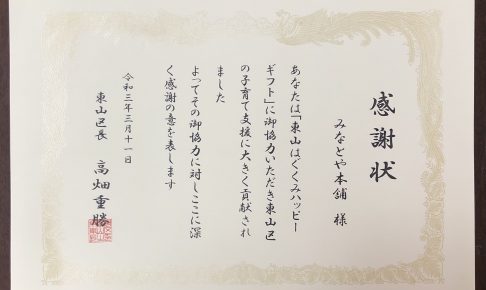 感謝状
みなとや本舗 様
あなたは「東山はぐくみハッピー
ギフト」に御協力いただき東山区
の子育て支援に大きく貢献され
ました
よってその御協力に対しここに深
く感謝の意を表します
令和三年三月十一日
東山区長 高畑重勝